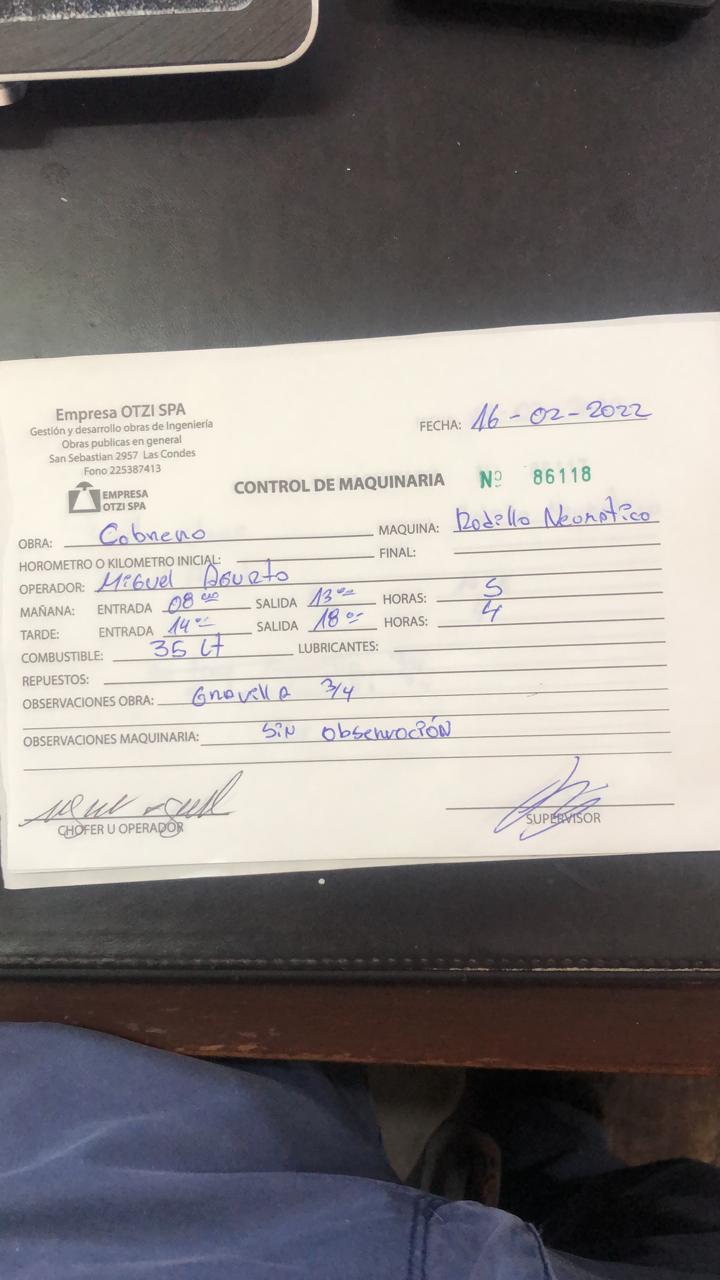 Empresa OTZI SPA
Gestión y desarrollo obras de Ingeniería
Obras publicas en general
San Sebastian 2957 Las Condes
Fono 225387413
EMPRESA
OTZI SPA
FECHA: 16-02-2022
CONTROL DE MAQUINARIA Nº 86118
OBRA: Cobrero MAQUINA: Rodillo Neomatico
HOROMETRO O KILOMETRO INICIAL: FINAL:
OPERADOR: Miguel Agurto
MAÑANA: ENTRADA 08 00 SALIDA 13 00 HORAS: 5
TARDE: ENTRADA 14 00 SALIDA 18 00 HORAS: 4
COMBUSTIBLE: 35 Lt LUBRICANTES:
REPUESTOS:
OBSERVACIONES OBRA: Gravilla 3/4
OBSERVACIONES MAQUINARIA: Sin Observación
CHOFER U OPERADOR SUPERVISOR